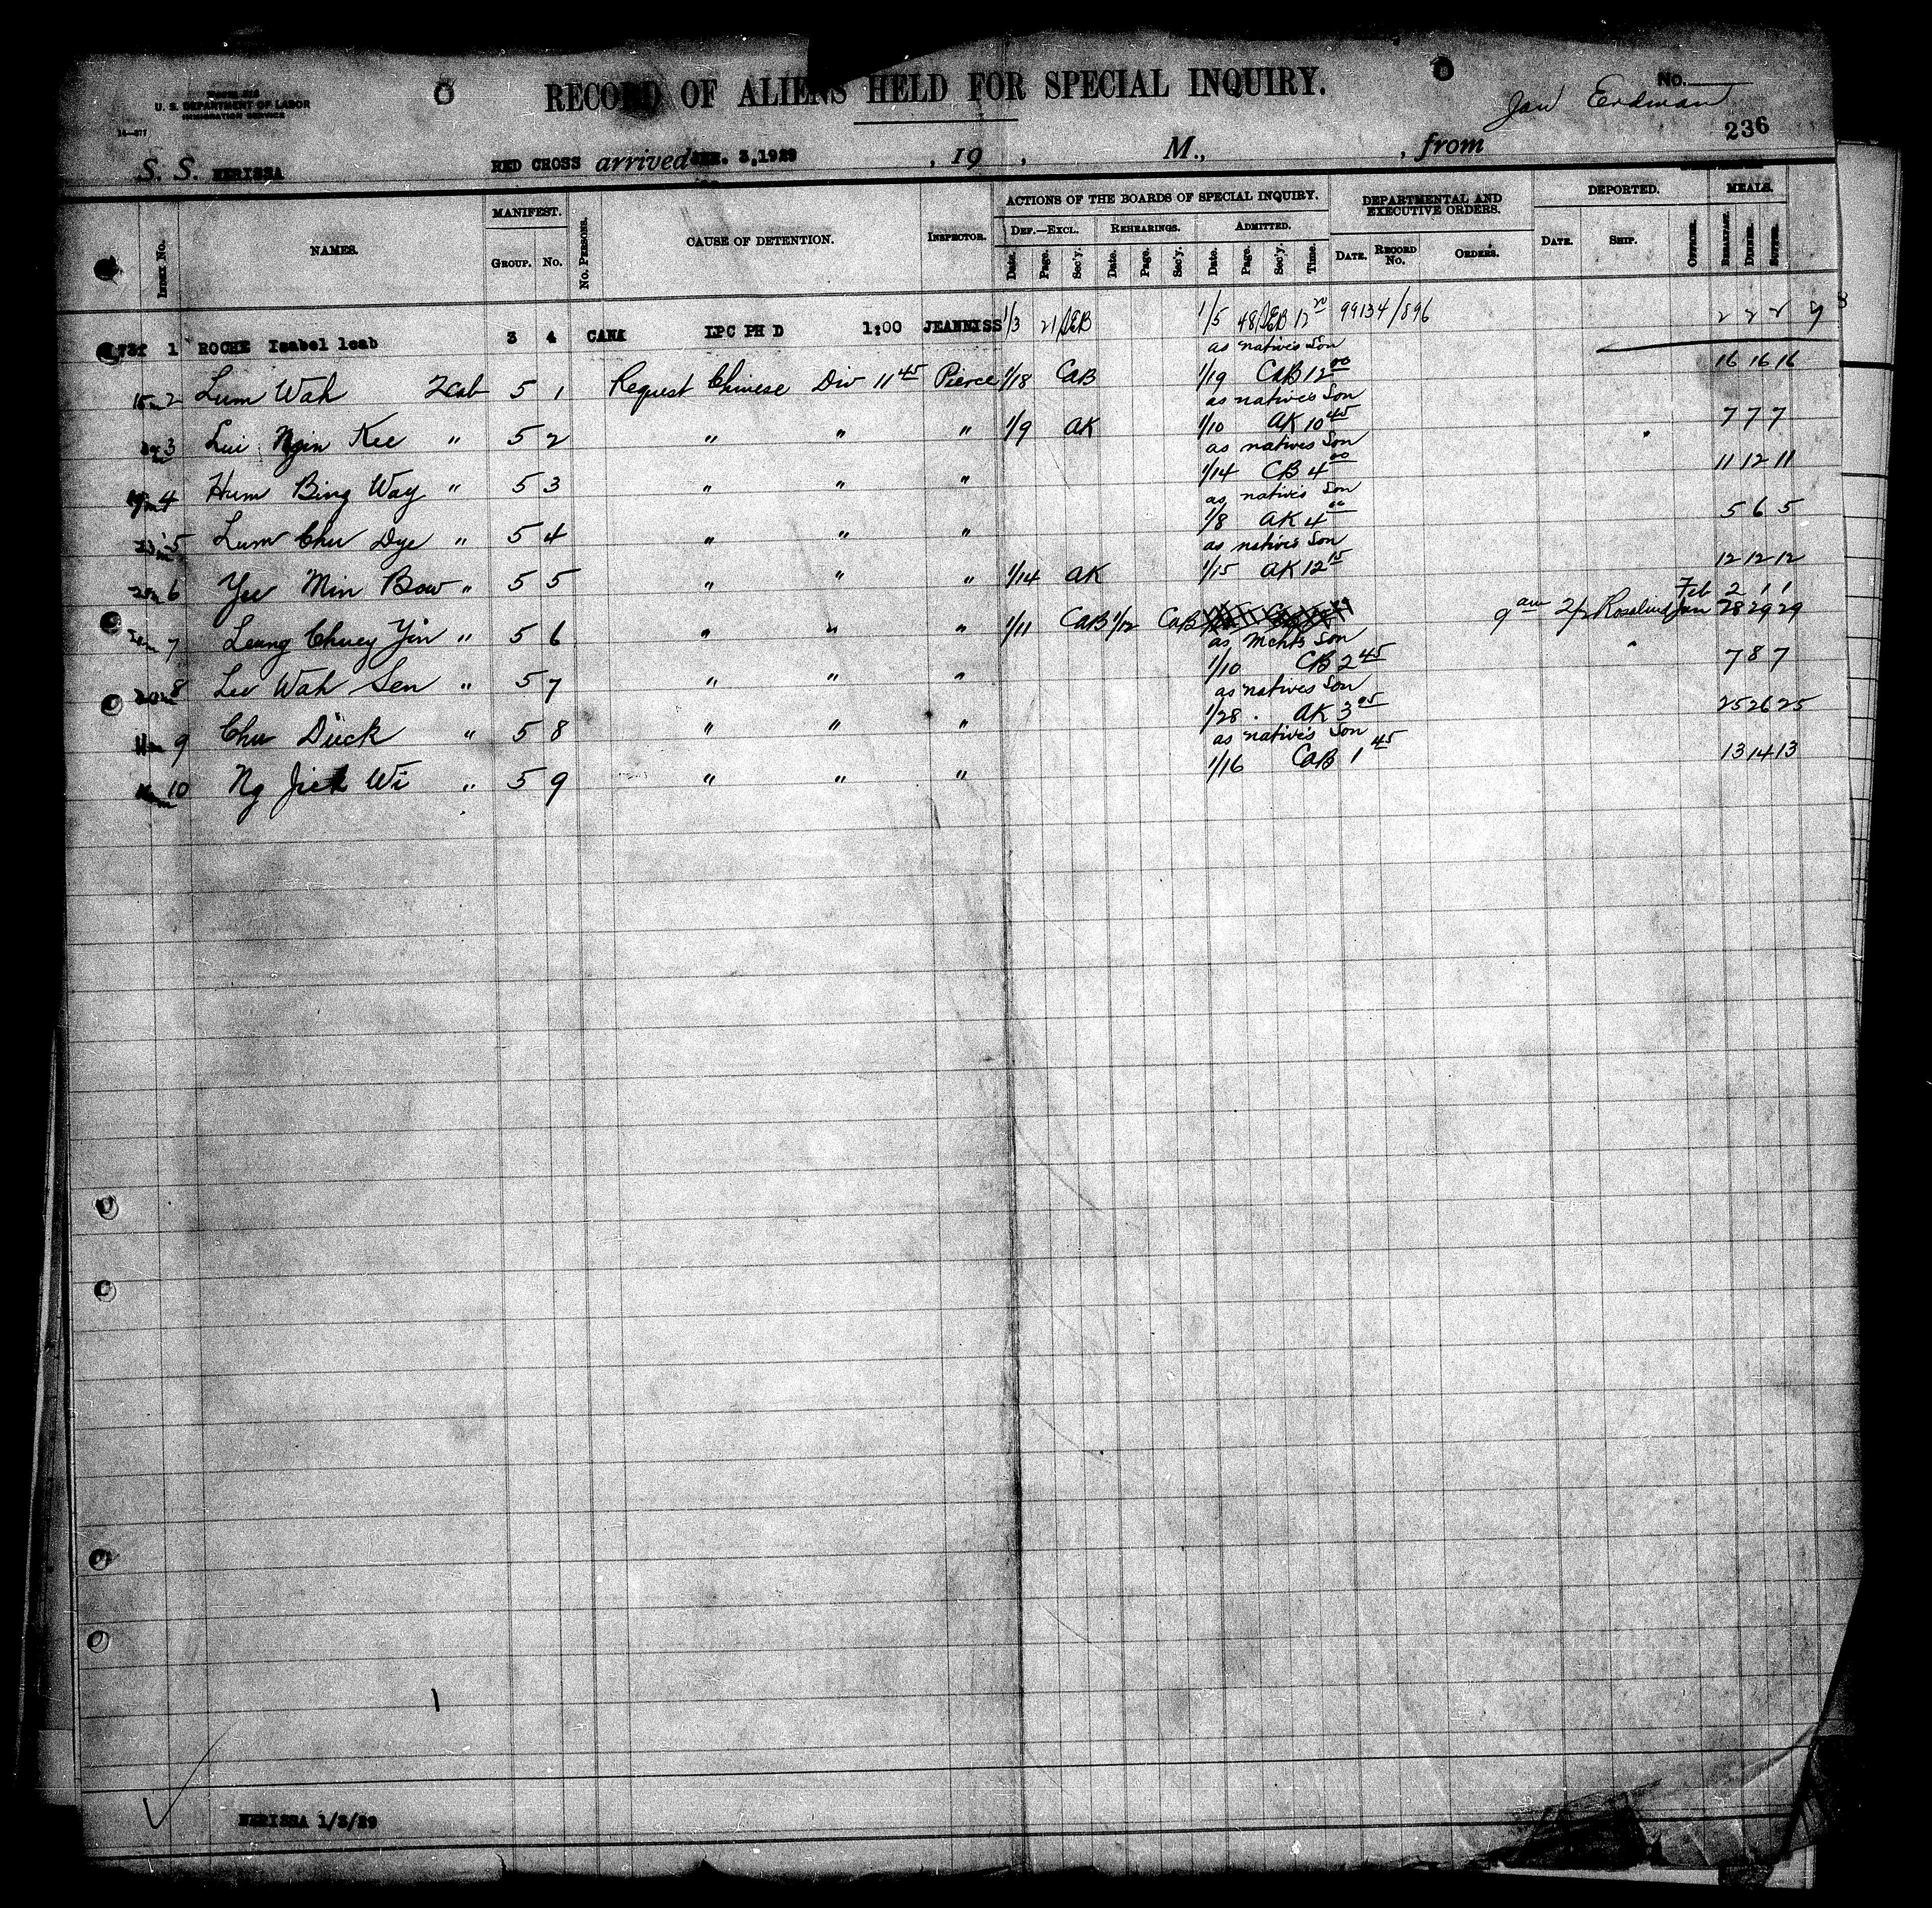 RECORD OF ALIENS HELD FOR SPECIAL INQUIRY.
U. S. DEPARTMENT OF LABOR
IMMIGRATION SERVICE
No.
Jan Erdman
236
S. S. NERISSA RED CROSS arrived 3,1929 , 19 , M., , from
INDEX No. NAMES. MANIFEST. GROUP. No. No. PERSONS. CAUSE OF DETENTION. INSPECTOR. ACTIONS OF THE BOARDS OF SPECIAL INQUIRY. DEF.—EXCL. Date. Page. Sec'y. REHEARINGS. Date. Page. Sec'y. ADMITTED. Date. Page. Sec'y. Time. DEPARTMENTAL AND EXECUTIVE ORDERS. DATE. RECORD No. ORDERS. DEPORTED. DATE. SHIP. OFFICER. MEALS. BREAKFAST. DINNER. SUPPER.
1 ROCHE Isabel 1cab 3 4 CANA LPC PH D 1:00 JEANNISS 1/3 21 1/5 48 99134/896 2 2 2
as natives Son
2 Lum Wah 2cab 5 1 Request Chinese Div 11 45 Pierce 1/18 CAB 1/19 CAB 12 00 16 16 16
as natives Son
3 Lui Ngin Kee " 5 2 " " " 1/9 AK 1/10 AK 10 45 7 7 7
as natives Son
4 Hum Bing Way " 5 3 " " " 1/14 CB 4 00 11 12 11
as natives Son
5 Lum Chu Dye " 5 4 " " " 1/8 AK 4 00 5 6 5
as natives Son
6 Yee Min Bow " 5 5 " " " 1/14 AK 1/15 AK 12 15 12 12 12
Feb 2 1 1
7 Leung Chuey Yin " 5 6 " " " 1/11 CAB 1/12 CAB 9 am 2/2 Rosalind Jan 28 29 29
as Mchts Son
8 Lee Wah Sen " 5 7 " " " 1/10 CB 2 45 7 8 7
as natives Son
9 Chu Duck " 5 8 " " " 1/28 AK 3 05 25 26 25
as natives Son
10 Ng Jick Wi " 5 9 " " " 1/16 CAB 1 45 13 14 13
NERISSA 1/3/29